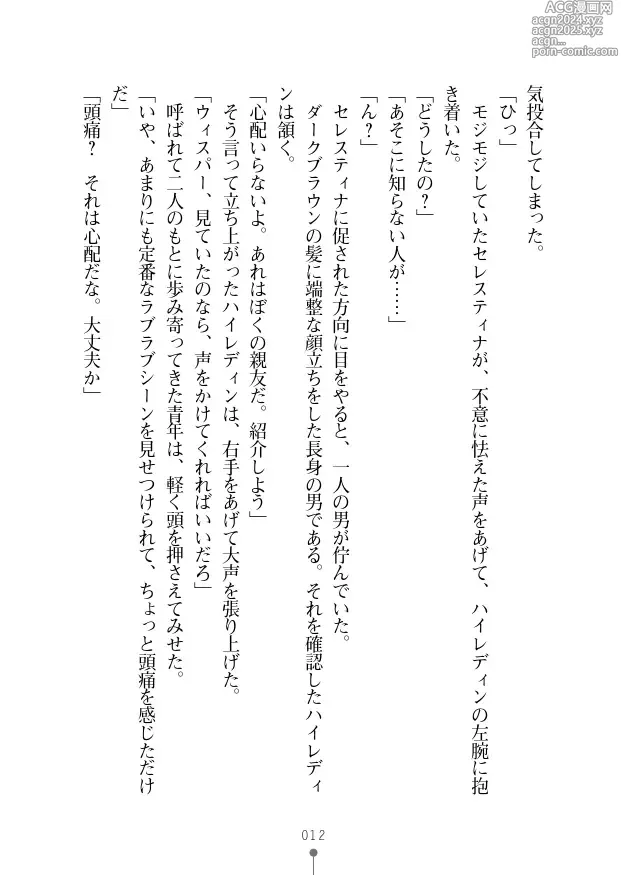 気投合してしまった。
「ひっ」
モジモジしていたセレスティナが、不意に怯えた声をあげて、ハイレディンの左腕に抱
き着いた。
「どうしたの?」
「あそこに知らない人が……」
「ん?」
セレスティナに促された方向に目をやると、一人の男が佇んでいた。
ダークブラウンの髪に端整な顔立ちをした長身の男である。それを確認したハイレディ
ンは頷く。
「心配いらないよ。あれはぼくの親友だ。紹介しよう」
そう言って立ち上がったハイレディンは、右手をあげて大声を張り上げた。
「ウィスパー、見ていたのなら、声をかけてくれればいいだろ」
呼ばれて二人のもとに歩み寄ってきた青年は、軽く頭を押さえてみせた。
「いや、あまりにも定番なラブラブシーンを見せつけられて、ちょっと頭痛を感じただけ
だ」
「頭痛? それは心配だな。大丈夫か」
012
ACG漫画网
acgn2024.xyz
acgn2025.xyz
acgn...
porn-comic.com